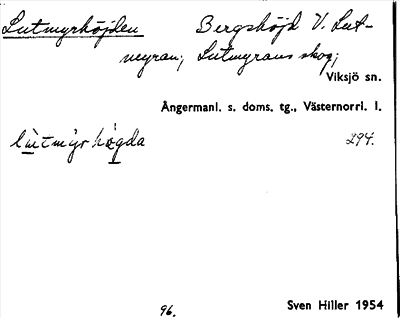 Lutmyrhöjden Bergshöjd V. Lut-
myran; Lutmyrans skog;
Viksjö sn.
Ångermanl. s. doms. tg., Västernorrl. l.
294.
96.
Sven Hiller 1954